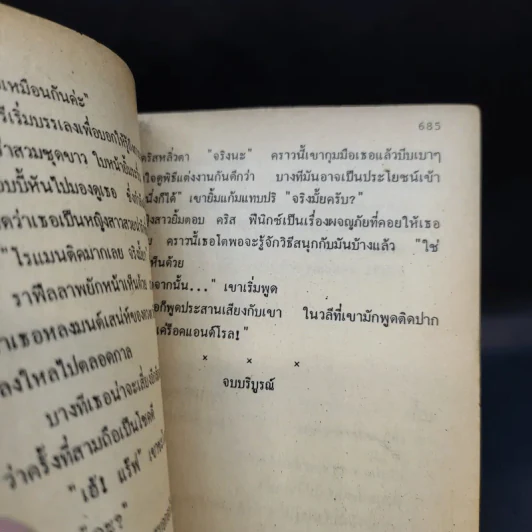 เหมือนกันค่ะ"
รีเริ่มบรรเลงเพื่อบอกให้รู้
ว่าสวมชุดขาว ใบหน้ายิ้ม
บบี้หันไปมองดูเธอ
ดว่าเธอเป็นหญิงสาวสวย
"โรแมนติคมากเลย จริงมั้ย"
ราฟีลลาพยักหน้าเห็นด้วย
าเธอหลงมนต์เสน่ห์ของ
ลงใหลไปตลอดกาล
บางทีเธอน่าจะเสี่ยง
ว่าครั้งที่สามถือเป็นโชคดี
"เฮ้! แร็ฟ"
685
คริสหลิ่วตา "จริงนะ" คราวนี้เขากุมมือเธอแล้วบีบเบาๆ
ใจดูพิธีแต่งงานกันดีกว่า บางทีมันอาจเป็นประโยชน์เข้า
นึ่งก็ได้" เขายิ้มแก้มแทบปริ "จริงมั้ยครับ?"
ญิงสาวยิ้มตอบ คริส ฟีนิกซ์เป็นเรื่องผจญภัยที่คอยให้เธอ
ย คราวนี้เธอโตพอจะรู้จักวิธีสนุกกับมันบ้างแล้ว "ใช่
ห็นด้วย
จากนั้น..." เขาเริ่มพูด
อก็พูดประสานเสียงกับเขา ในวลีที่เขามักพูดติดปาก
เคร็อคแอนด์โรล!"
× × ×
จบบริบูรณ์